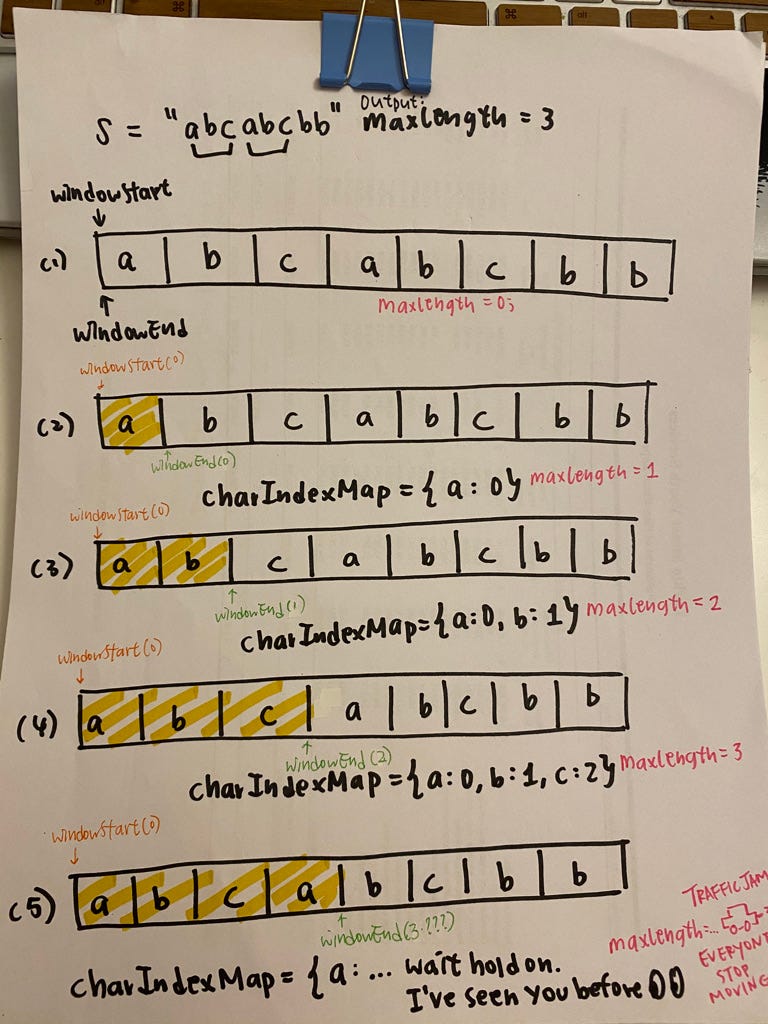 S = "abcabcbb" Output: maxlength = 3
windowStart
(1) a b c a b c b b
maxlength = 0;
windowEnd
windowStart(0)
(2) a b c a b c b b
windowEnd(0)
charIndexMap = { a: 0} maxlength = 1
windowStart(0)
(3) a b c a b c b b
windowEnd(1)
charIndexMap={a:0, b:1} maxlength = 2
windowStart(0)
(4) a b c a b c b b
windowEnd(2)
charIndexMap={a:0, b:1, c:2} maxlength = 3
windowStart(0)
(5) a b c a b c b b
windowEnd(3.???)
TRAFFIC JAM
maxlength=...
EVERYONE
STOP
MOVING
charIndexMap = { a: ... wait hold on.
I've seen you before